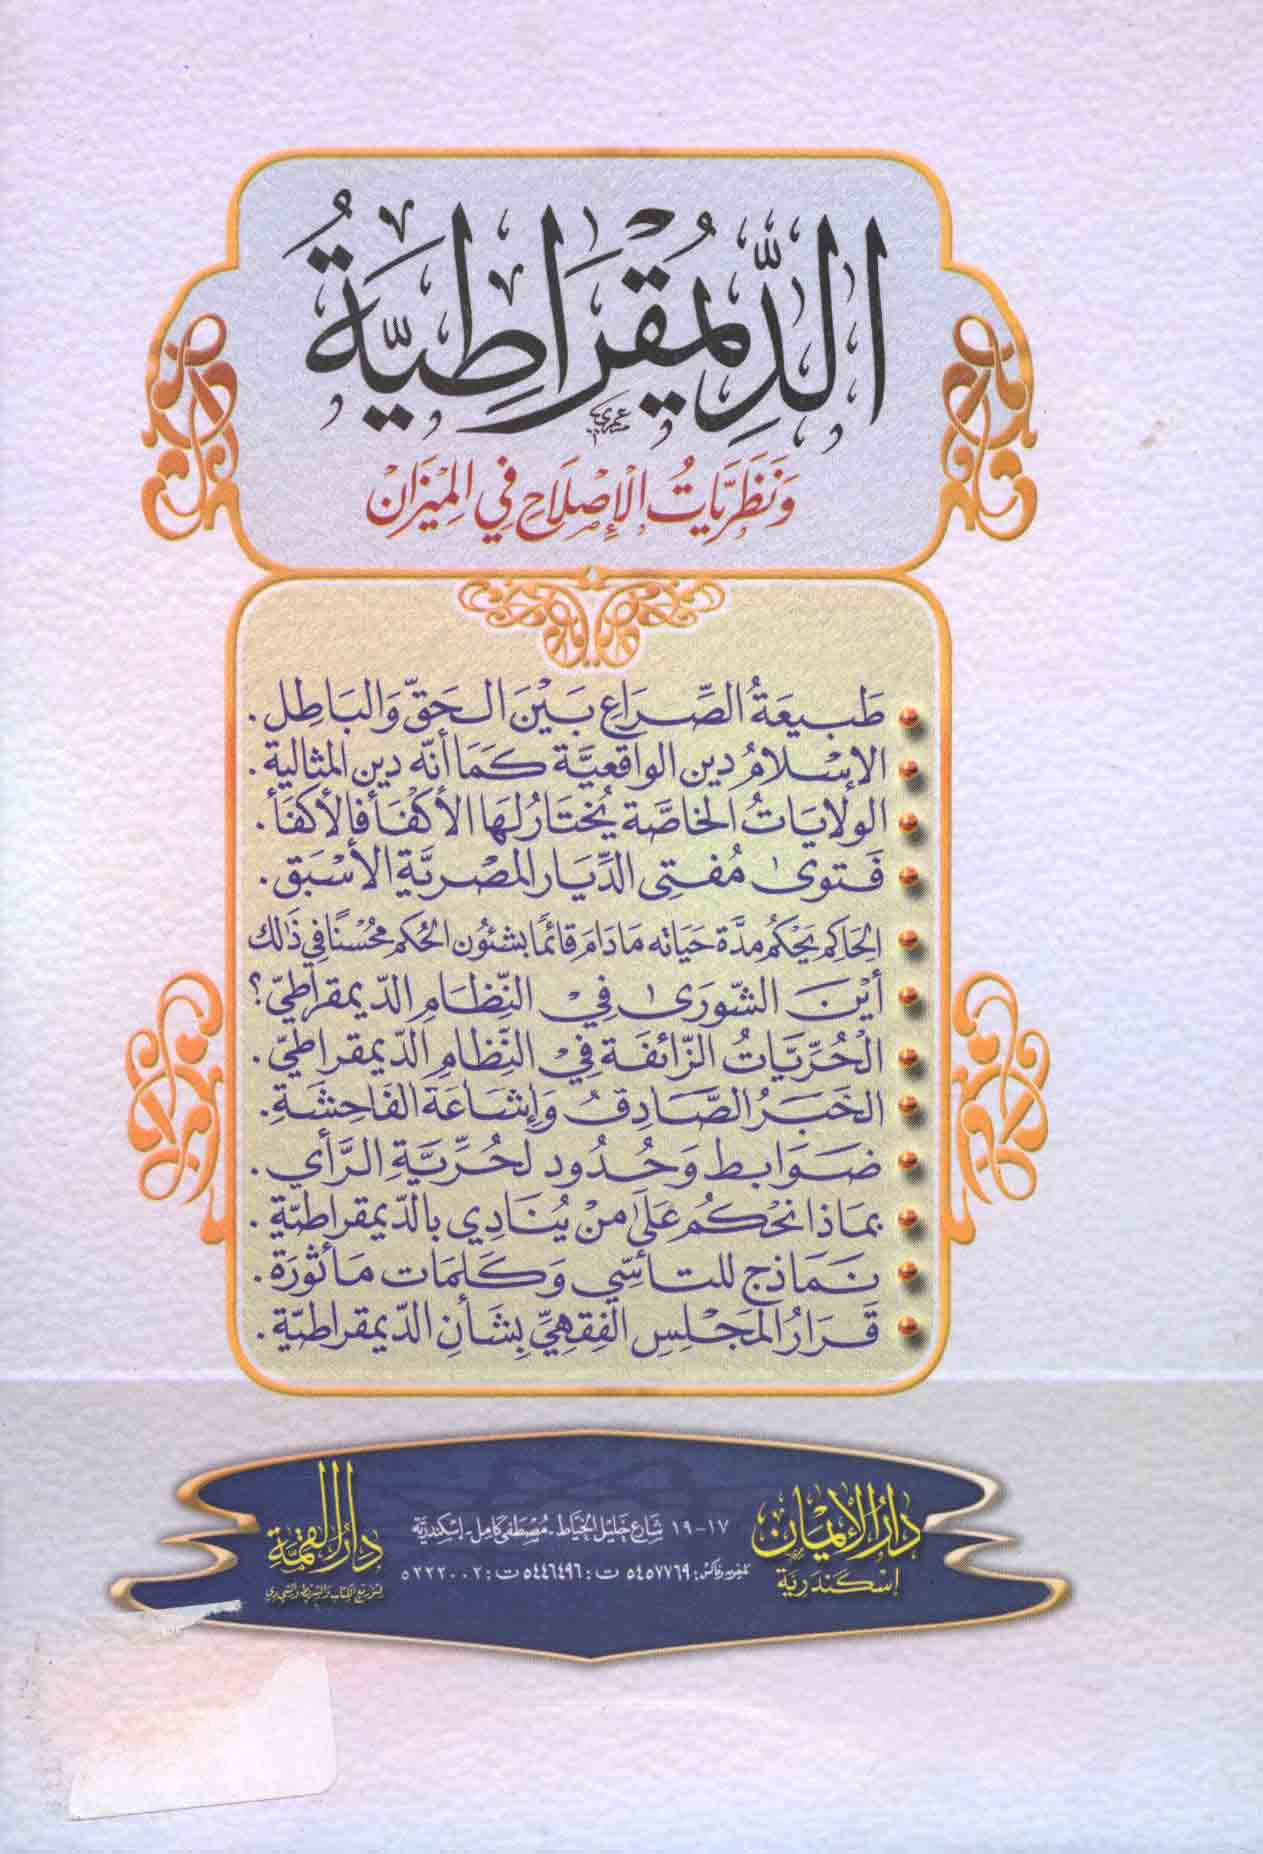 الدِّيمُقْرَاطِيَّةُ
وَنَظَرِيَّاتُ الْإِصْلَاحِ فِي الْمِيزَانْ
طَبيعَةُ الصِّرَاعِ بَيْنَ الحَقّ وَالبَاطِل.
الإسْلامُ دين الواقعيَّة كَمَا أنّه دين المثالية.
الولايَاتُ الخاصَّة يُختَارُ لهَا الأكْفَأ فالأكفَأ.
فَتوىٰ مُفتِي الدِّيَار المصْريَّةِ الأسْبَق.
الحَاكِم يَحْكُم مدَّة حَيَاته مَادَامَ قَائمًا بشئون الحُكم مُحْسنًا في ذَالك
أيْنَ الشّورَىٰ فِيْ النِّظَامِ الدّيمقراطيّ؟
الْحُرِّيَّاتُ الزَّائفَة فِيْ النِّظَامِ الدّيمقراطيّ.
الخَبَرُ الصَّادِقُ وَإشَاعَة الفَاحِشَةِ.
ضَوَابط وَحُدُود لحُرِّيَّةِ الرَّأي.
بمَاذا نَحْكُم عَلَىٰ مَنْ يُنَادِي بالدّيمقراطيّة.
نَمَاذج للتأسِّي وَكَلمَات مَأثورَة.
قَرَارُ المَجْلِسِ الفِقهِيِّ بِشَأنِ الدّيمقراطيّة.
دَارُ الإِيْمَان
إسْكَندَرِيَة
١٧-١٩ شارع خليل الخياط - مصطفى كامل - إسكندرية
تليفون وفاكس: ٥٤٥٧٧٦٩ ت: ٥٤٤٦٤٩٦ ت: ٥٢٢٢٠٠٢
دَارُ القِمَّة
لتوزيع الكتاب والشريط والـ